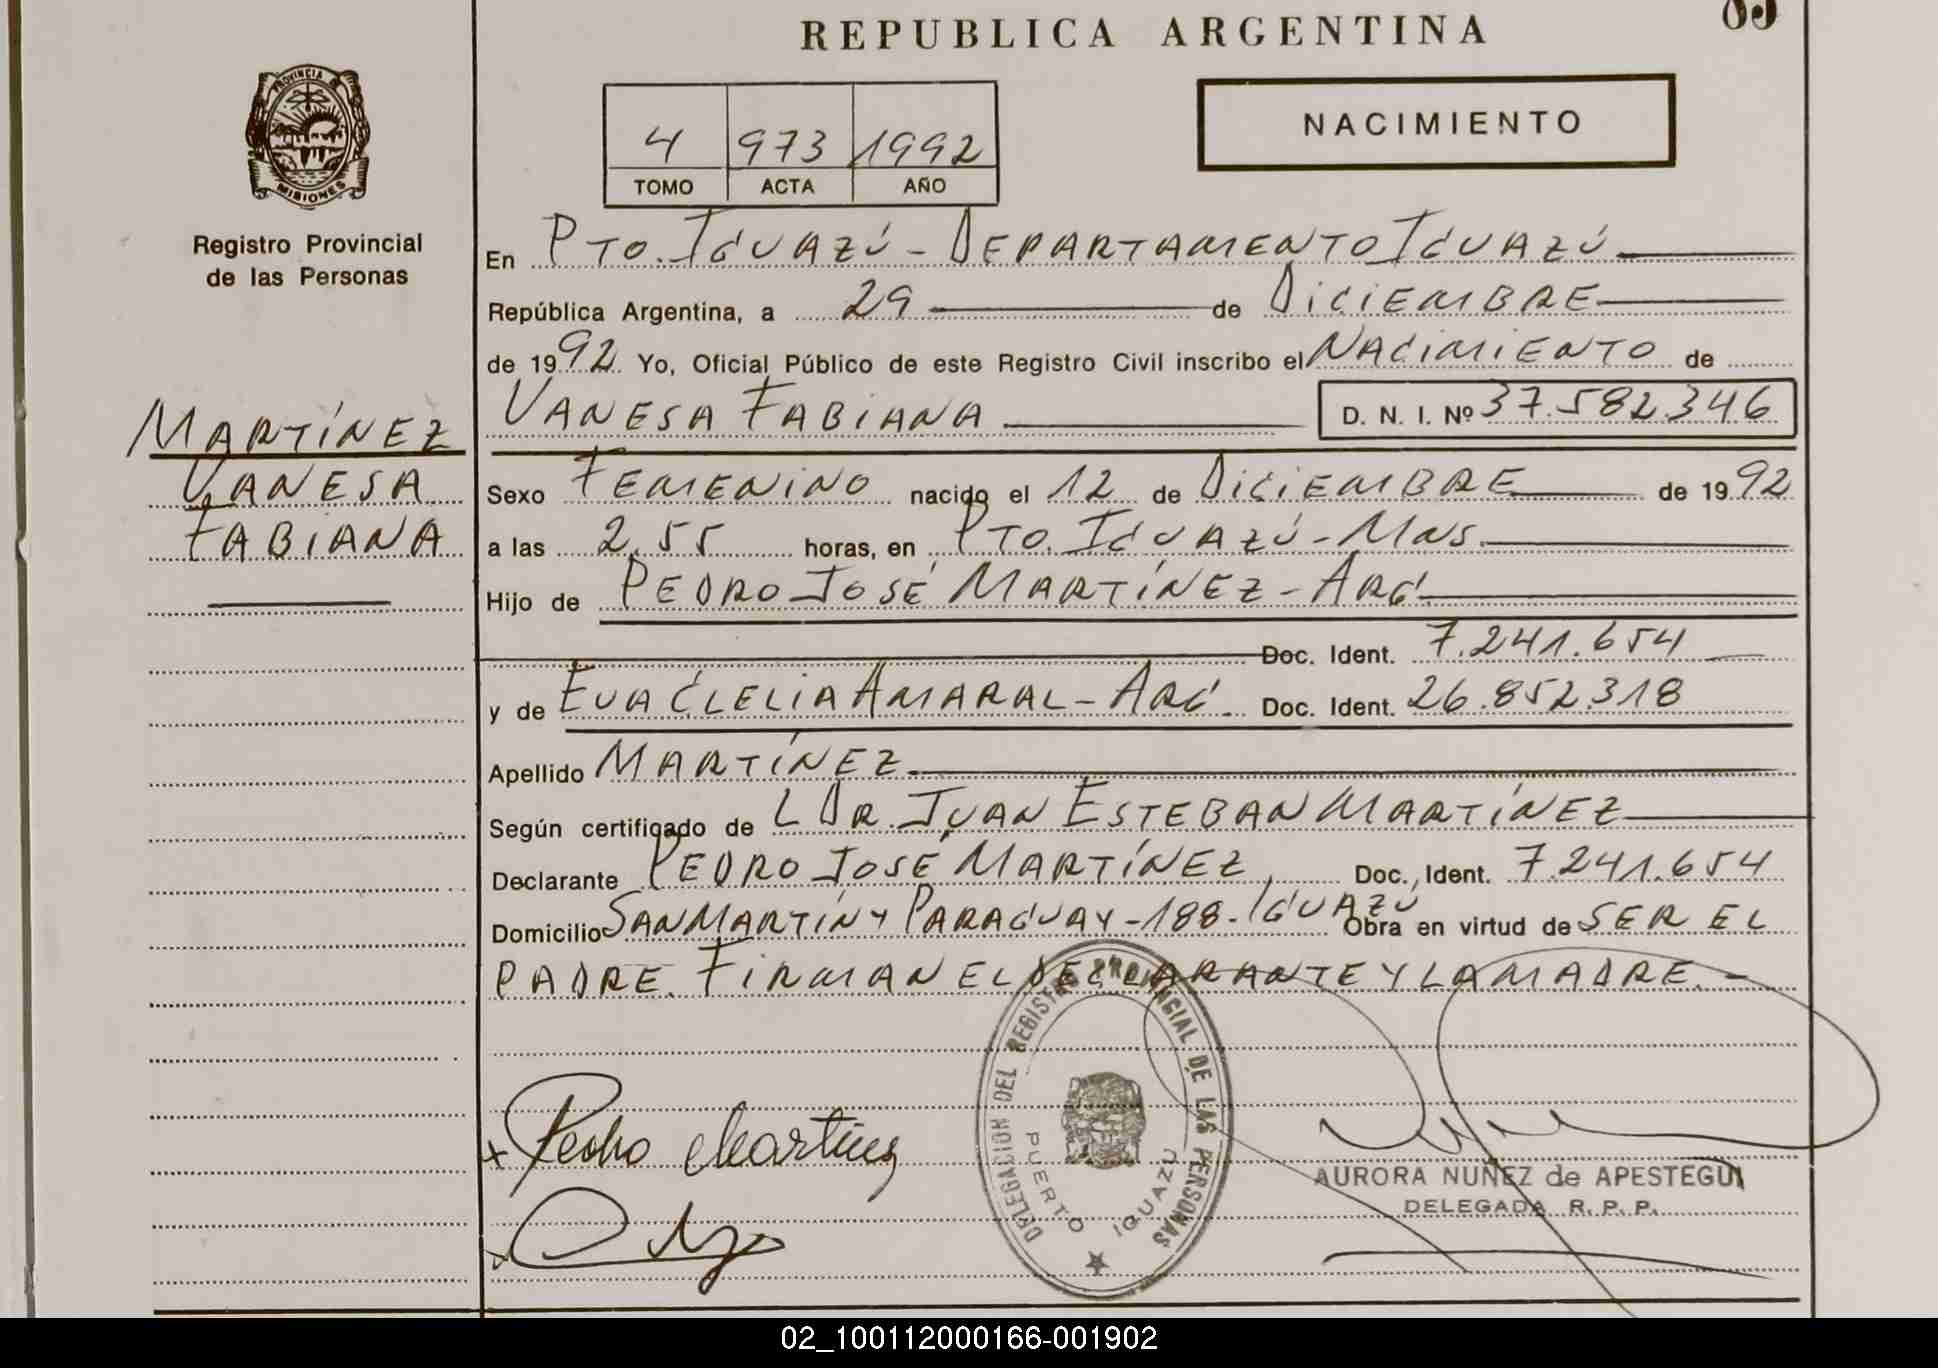 REPUBLICA ARGENTINA
PROVINCIA DE
MISIONES
Registro Provincial
de las Personas
4 973 1992
TOMO ACTA AÑO
NACIMIENTO
En PTO. IGUAZÚ - DEPARTAMENTO IGUAZÚ
República Argentina, a 29 de DICIEMBRE
de 1992. Yo, Oficial Público de este Registro Civil inscribo el NACIMIENTO de
VANESA FABIANA D. N. I. Nº 37.582.346
MARTÍNEZ
VANESA
FABIANA
Sexo FEMENINO nacido el 12 de DICIEMBRE de 1992
a las 2,55 horas, en PTO. IGUAZÚ - MNS.
Hijo de PEDRO JOSÉ MARTÍNEZ - ARG.
Doc. Ident. 7.241.654
y de EVA CLELIA AMARAL - ARG. Doc. Ident. 26.852.318
Apellido MARTÍNEZ
Según certificado de L DR. JUAN ESTEBAN MARTÍNEZ
Declarante PEDRO JOSÉ MARTÍNEZ, Doc. Ident. 7.241.654
Domicilio SAN MARTÍN Y PARAGUAY - 188 - IGUAZÚ Obra en virtud de SER EL
PADRE. FIRMAN EL DECLARANTE Y LA MADRE. -
DELEGACION DEL REGISTRO PROVINCIAL DE LAS PERSONAS
PUERTO IGUAZU
Pedro Martinez
AURORA NUÑEZ de APESTEGUI
DELEGADA R. P. P.
02_100112000166-001902